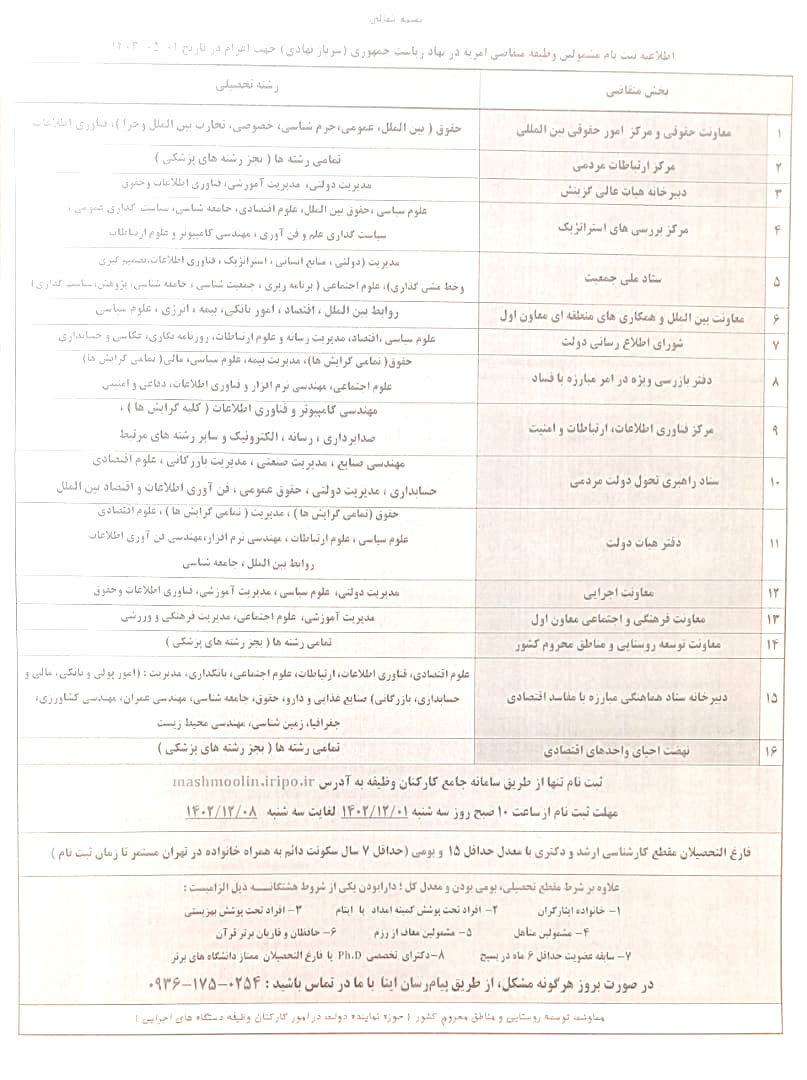 بسمه تعالی
اطلاعیه ثبت نام مشمولین وظیفه متقاضی امریه در نهاد ریاست جمهوری (سرباز نهادی) جهت اعزام در تاریخ ۱۴۰۳/۰۵/۰۱
بخش متقاضی رشته تحصیلی
۱ معاونت حقوقی و مرکز امور حقوقی بین المللی حقوق ( بین الملل، عمومی،جرم شناسی، خصوصی، تجارت بین الملل وجزا )، فناوری اطلاعات
۲ مرکز ارتباطات مردمی تمامی رشته ها ( بجز رشته های پزشکی )
۳ دبیرخانه هیات عالی گزینش مدیریت دولتی، مدیریت آموزشی، فناوری اطلاعات وحقوق
۴ مرکز بررسی های استراتژیک علوم سیاسی ،حقوق بین الملل، علوم اقتصادی، جامعه شناسی، سیاست گذاری عمومی ،
سیاست گذاری علم و فن آوری ، مهندسی کامپیوتر و علوم ارتباطات
۵ ستاد ملی جمعیت مدیریت (دولتی ، منابع انسانی ، استراتژیک ، فناوری اطلاعات،تصمیم گیری
وخط مشی گذاری)، علوم اجتماعی ( برنامه ریزی ، جمعیت شناسی ، جامعه شناسی، پژوهش،سیاست گذاری)
۶ معاونت بین الملل و همکاری های منطقه ای معاون اول روابط بین الملل ، اقتصاد ، امور بانکی، بیمه ، انرژی ، علوم سیاسی
۷ شورای اطلاع رسانی دولت علوم سیاسی، اقتصاد، مدیریت رسانه و علوم ارتباطات، روزنامه نگاری، عکاسی و حسابداری
۸ دفتر بازرسی ویژه در امر مبارزه با فساد حقوق( تمامی گرایش ها)، مدیریت بیمه، علوم سیاسی، مالی( تمامی گرایش ها)
علوم اجتماعی، مهندسی نرم افزار و فناوری اطلاعات، دفاعی و امنیتی
۹ مرکز فناوری اطلاعات، ارتباطات و امنیت مهندسی کامپیوتر و فناوری اطلاعات ( کلیه گرایش ها ) ،
صدابرداری ، رسانه ، الکترونیک و سایر رشته های مرتبط
۱۰ ستاد راهبری تحول دولت مردمی مهندسی صنایع ، مدیریت صنعتی ، مدیریت بازرگانی ، علوم اقتصادی
حسابداری ، مدیریت دولتی ، حقوق عمومی ، فن آوری اطلاعات و اقتصاد بین الملل
۱۱ دفتر هیات دولت حقوق (تمامی گرایش ها ) ، مدیریت ( تمامی گرایش ها ) ، علوم اقتصادی
علوم سیاسی ، علوم ارتباطات ، مهندسی نرم افزار،مهندسی فن آوری اطلاعات
روابط بین الملل ، جامعه شناسی
۱۲ معاونت اجرایی مدیریت دولتی، علوم سیاسی ، مدیریت آموزشی، فناوری اطلاعات وحقوق
۱۳ معاونت فرهنگی و اجتماعی معاون اول مدیریت آموزشی، علوم اجتماعی، مدیریت فرهنگی و ورزشی
۱۴ معاونت توسعه روستایی و مناطق محروم کشور تمامی رشته ها ( بجز رشته های پزشکی )
۱۵ دبیرخانه ستاد هماهنگی مبارزه با مفاسد اقتصادی علوم اقتصادی، فناوری اطلاعات، ارتباطات، علوم اجتماعی، بانکداری، مدیریت : (امور پولی و بانکی، مالی و
حسابداری، بازرگانی) صنایع غذایی و دارو، حقوق، جامعه شناسی، مهندسی عمران، مهندسی کشاورزی،
جغرافیا، زمین شناسی، مهندسی محیط زیست
۱۶ نهضت احیای واحدهای اقتصادی تمامی رشته ها ( بجز رشته های پزشکی )
ثبت نام تنها از طریق سامانه جامع کارکنان وظیفه به آدرس mashmoolin.iripo.ir
مهلت ثبت نام از ساعت ۱۰ صبح روز سه شنبه ۱۴۰۲/۱۲/۰۱ لغایت سه شنبه ۱۴۰۲/۱۲/۰۸
فارغ التحصیلان مقطع کارشناسی ارشد و دکتری با معدل حداقل ۱۵ و بومی (حداقل ۷ سال سکونت دائم به همراه خانواده در تهران مستمر تا زمان ثبت نام )
علاوه بر شرط مقطع تحصیلی، بومی بودن و معدل کل ؛ دارابودن یکی از شروط هشتگانه ذیل الزامیست :
۱- خانواده ایثارگران ۲- افراد تحت پوشش کمیته امداد یا ایتام ۳- افراد تحت پوشش بهزیستی
۴- مشمولین متأهل ۵- مشمولین معاف از رزم ۶- حافظان و قاریان برتر قرآن
۷- سابقه عضویت حداقل ۶ ماه در بسیج ۸-دکترای تخصصی Ph.D یا فارغ التحصیلان ممتاز دانشگاه های برتر
در صورت بروز هرگونه مشکل، از طریق پیام‌رسان ایتا با ما در تماس باشید : ۰۲۵۴-۱۷۵-۰۹۳۶
معاونت توسعه روستایی و مناطق محروم کشور ( حوزه نماینده دولت در امور کارکنان وظیفه دستگاه های اجرایی )